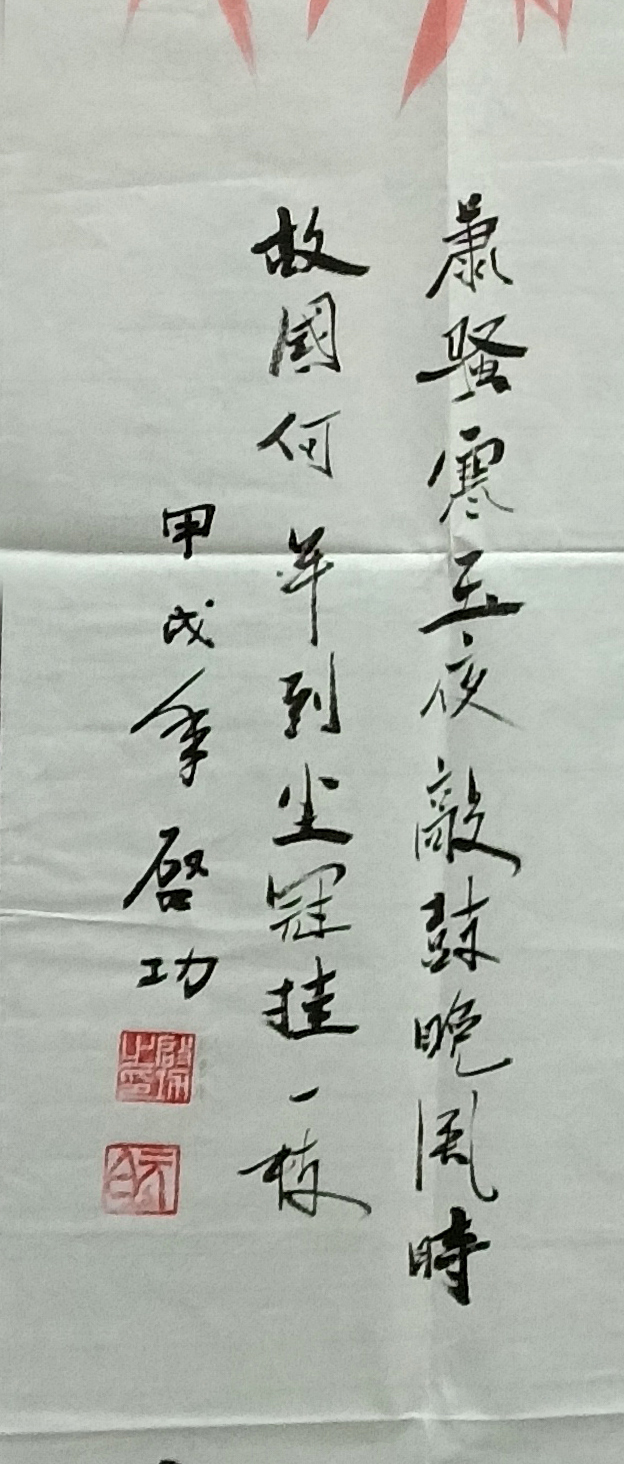 蕭騷寒玉夜敲鼓晚風時
故國何年到尘冠挂一枝
甲戌年啓功